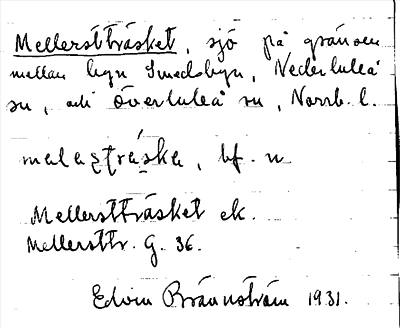 Mellersttträsket, sjö på gränsen
mellan byn Smedsbyn, Nederluleå
sn, och Överluleå sn, Norrb. l.
bf. n
Mellersttträsket ek.
Mellersttr. G. 36.
Edvin Brännström 1931.